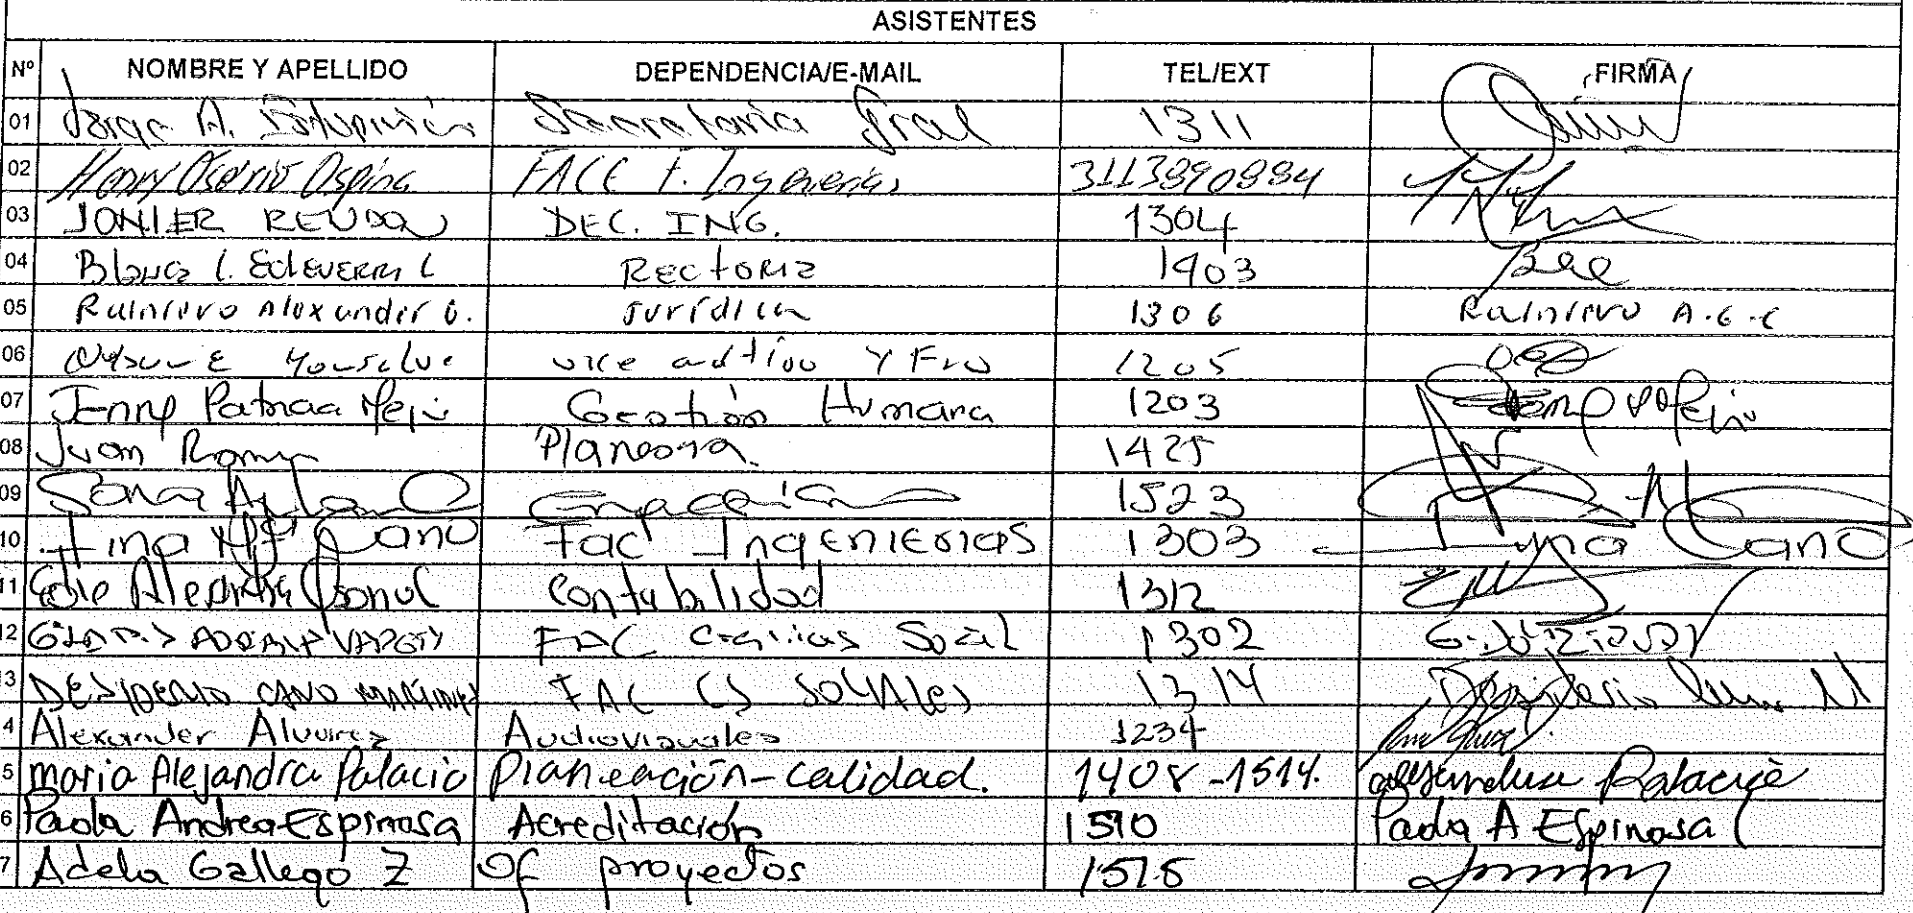 ASISTENTES
Nº NOMBRE Y APELLIDO DEPENDENCIA/E-MAIL TEL/EXT FIRMA
01 Jorge A. Estupiñán Secretaria Gral 1311
02 Henry Osorio Ospina FACC F. Ingenierías 3113890884
03 JONIER RENDON DEC. ING. 1304
04 Blanca L. Echeverri L Rectoria 1403
05 Rainiero Alexander G. Jurídica 1306 Rainiero A.G.C
06 vice adtivo Y Fro 1205
07 Jenny Patricia Mejia Gestión Humana 1203 Jenny P Mejia
08 Juan Planeación. 1425
09 Sonia 1523
10 Lina Mª Cano Fac Ingenierias 1303 Lina Cano
11 Contabilidad 1312
12 ADRIANA FAC Ciencias Social 1302
13 DESIDERIO CANO MARTINEZ FAC CS SOCIALES 1314 Desiderio M
4 Alexander Alvarez Audiovisuales 1234
5 Maria Alejandra Palacio Planeación-calidad. 1408-1514. Alejandra Palacio
6 Paola Andrea Espinosa Acreditación 1510 Paola A Espinosa
7 Adela Gallego Z Of proyectos 1515